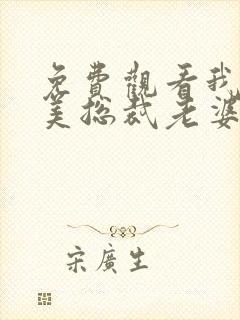 免費觀看我
美总裁老婆
宋廣生